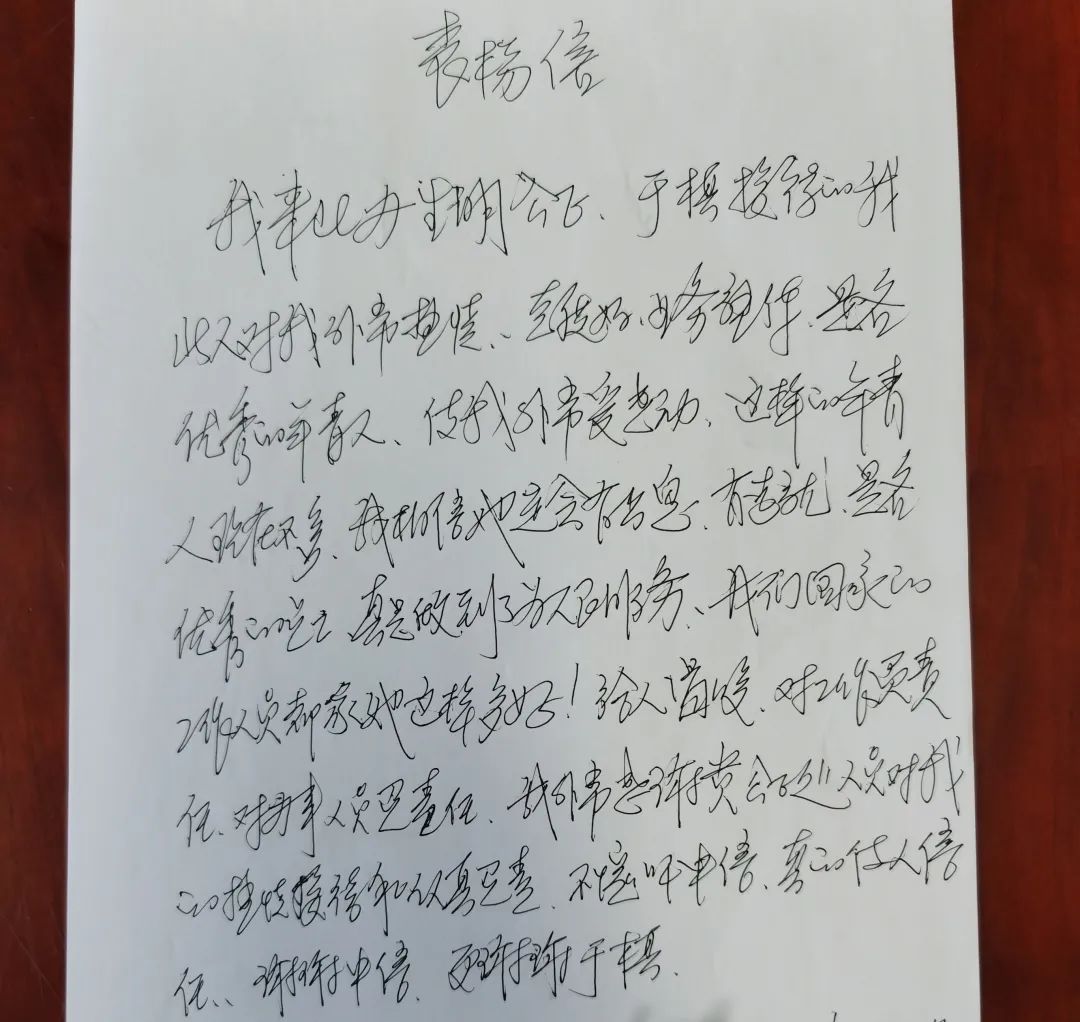 表扬信
我来此办声明公正、于棋接待的我
此人对我非常热情、、态度好、业务熟件、是名
优秀的年青人、使我非常受感动、这样的年青
人现在不多、我相信她定会有出息、有志就、是名
优秀的党工 真是做到了为人民服务、我们国家的
工作人员都象她这样多好！给人温暖、对工作负责
任、对办事人员负责任、我非常感谢贵公正处人员对我
的热情接待和认真负责、不愧叫中信、真的使人信
任、、谢谢中信、更谢谢于棋.